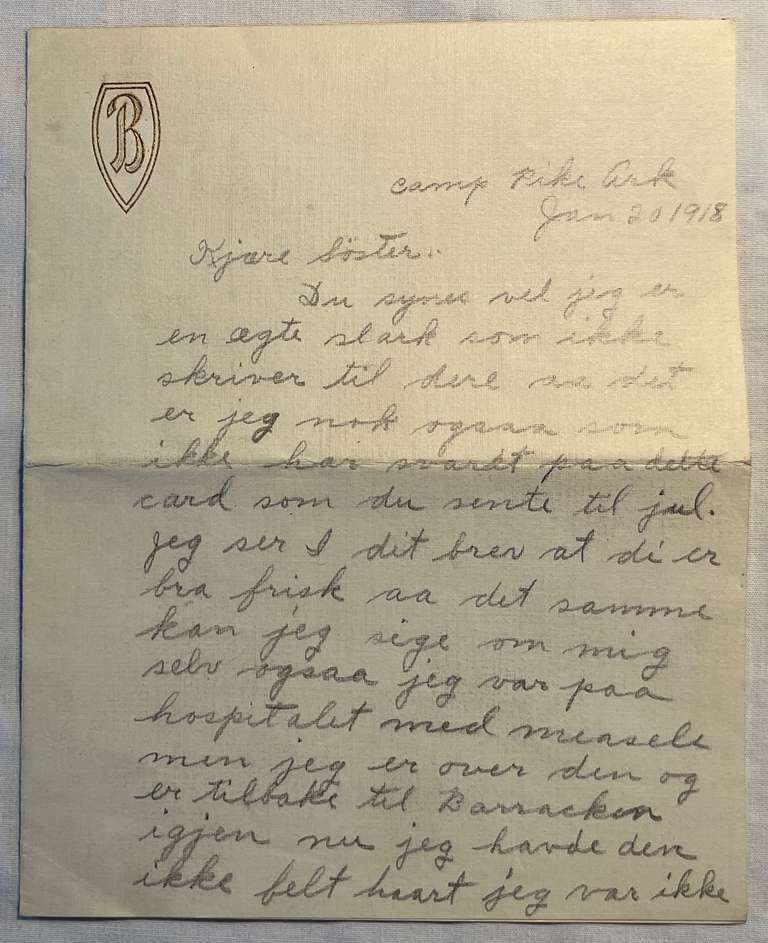 B
Camp Pike Ark
Jan 20 1918
Kjære Söster..
Du synes vel jeg er
en ægte slark som ikke
skriver til dere aa det
er jeg nok ogsaa som
ikke har svardt paa dette
card som du sente til jul.
jeg ser I dit brev at di er
bra frisk aa det samme
kan jeg sige om mig
selv ogsaa jeg var paa
hospitalet med measele
men jeg er over den og
er tilbake til Barracken
igjen nu jeg havde den
ikke felt haart jeg var ikke